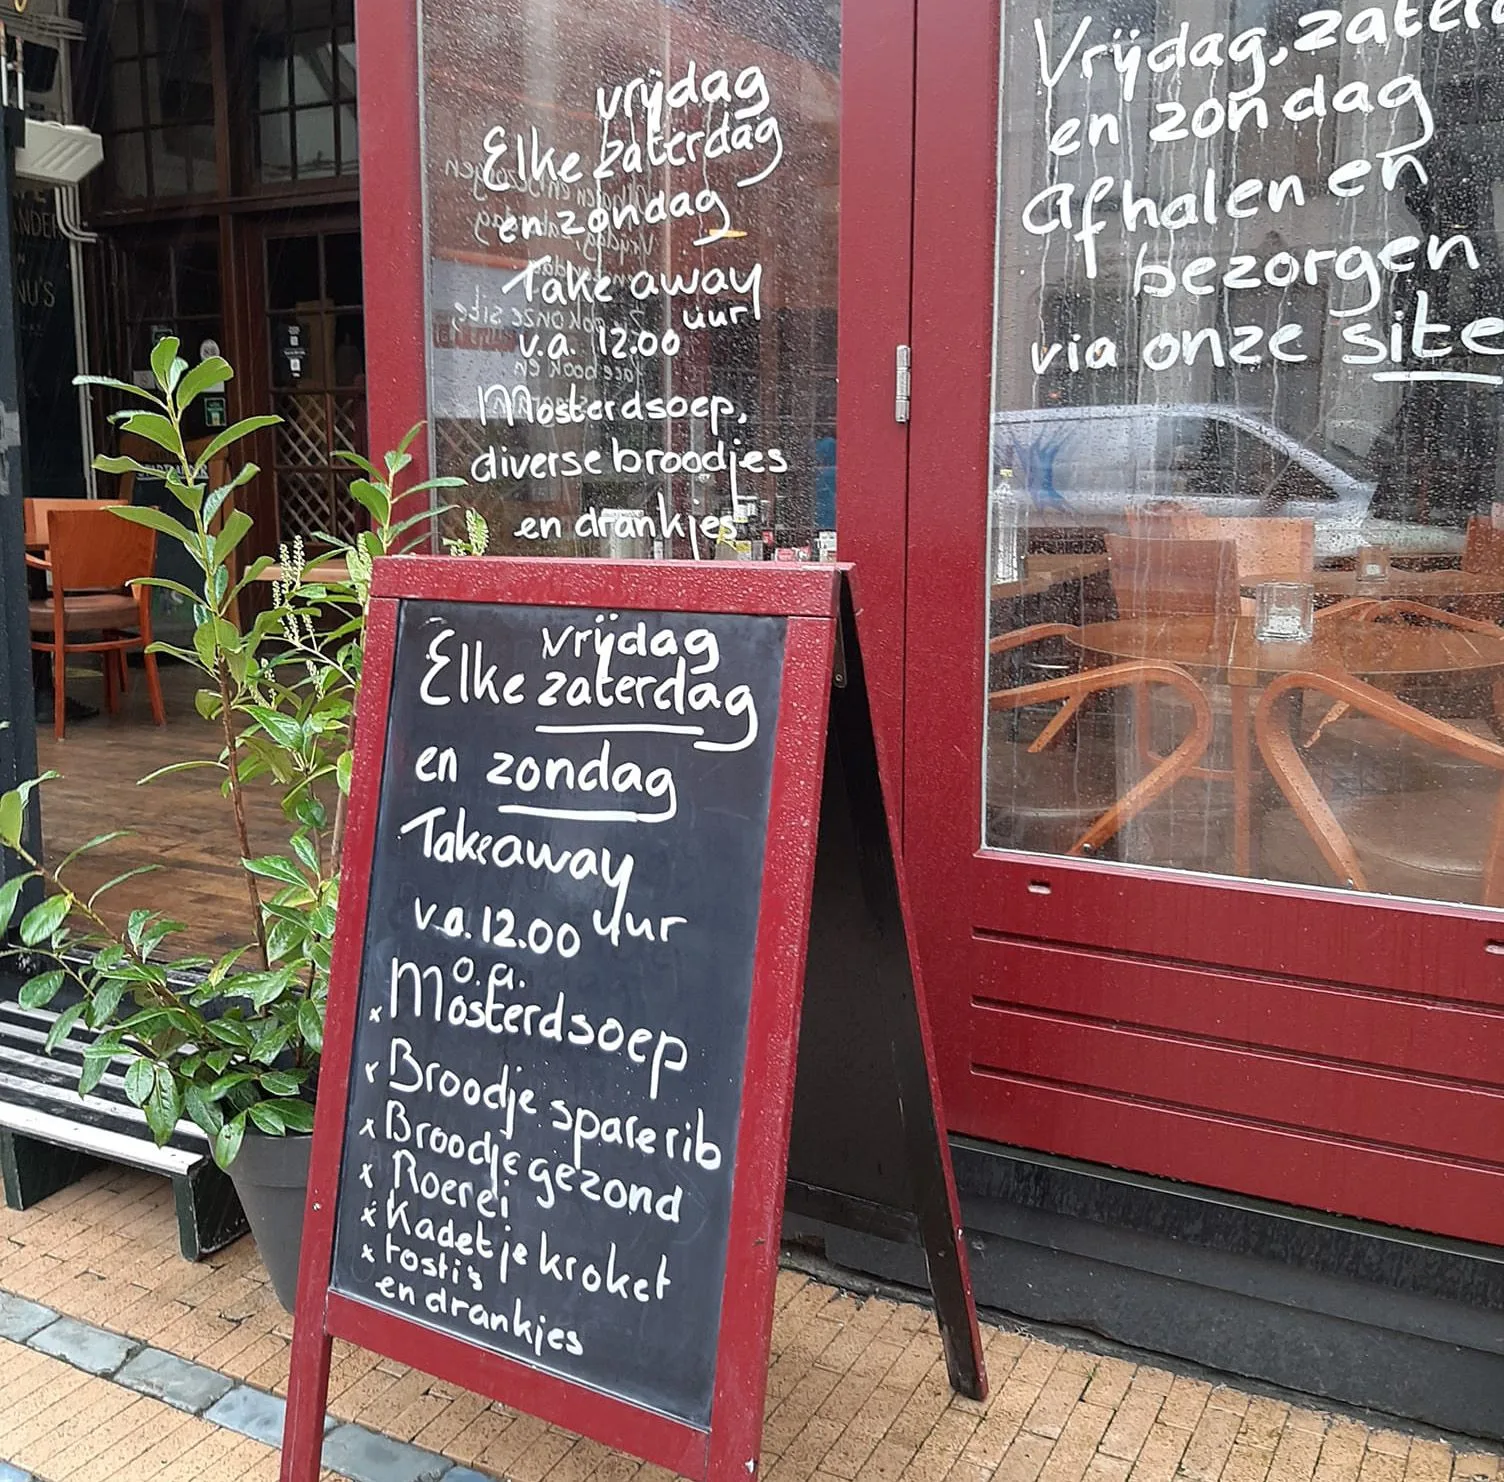 vrijdag
Elke zaterdag
en zondag
Take away
v.a. 12.00 uur
Mosterdsoep,
diverse broodjes
en drankjes
Vrijdag, zater
en zondag
afhalen en
bezorgen
via onze site
vrijdag
Elke zaterdag
en zondag
Takeaway
v.a. 12.00 uur
o.a.
x Mosterdsoep
x Broodje sparerib
x Broodje gezond
x Roerei
x Kadetje kroket
x tosti's
en drankjes